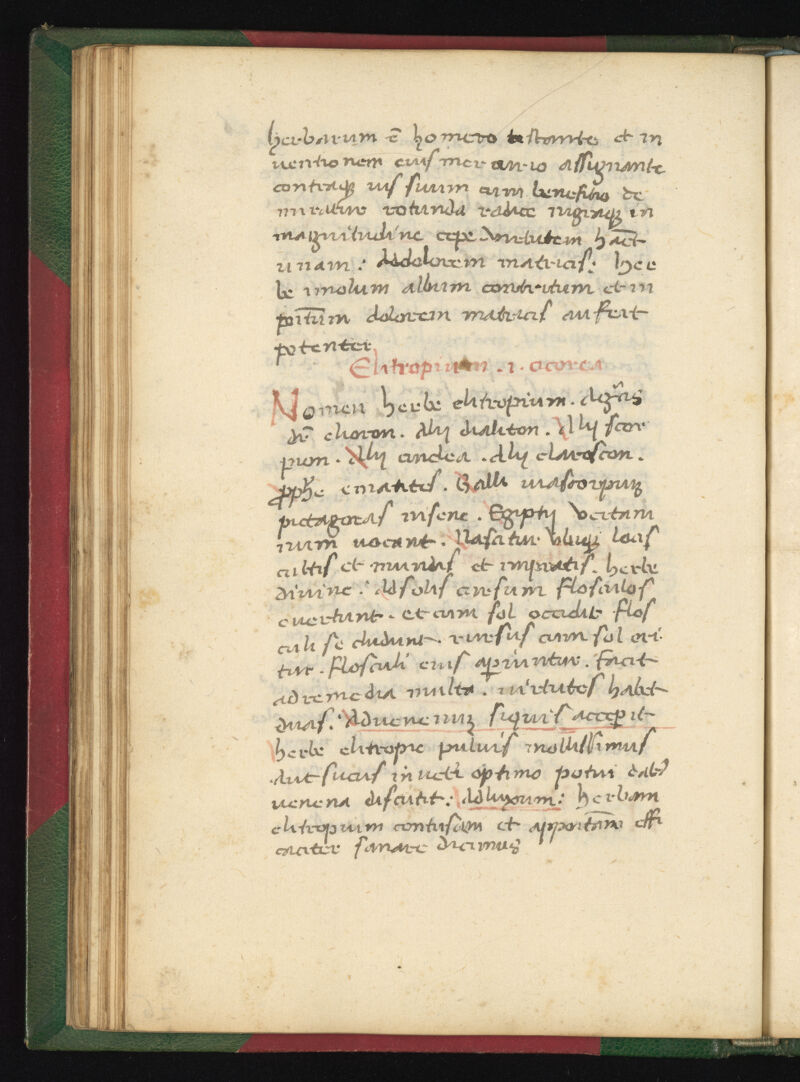 herbarum ē homero testante et in
uentionem eius mercurio assignante
contraq uis suum cum benefitio de
miratur rotunda radice nigraq in
magnitudine cepe Virtutem hāct
unam: Addolorem matricis: her
be imolum album contritum et in
poītum dolorem matricis aufert
potenter
Elitropium . i . cicorea
Nomen herbe elitropium. Agr̄is
dr̄ elioron. Alij dialiton. Alij scor
pion. Alij cindea. Alij clavoscon.
pphe ematites. Galli uiasoripuz
pictagoras insene. Egiptij Vertam
num uocant. Nascitur Vbiq locis
cultis et mundis et impratis. herbe
diuine: Ad solis cursum flosculos
euertunt. et cum sol occidit flos
culi se cludunt. rursus cum sol ori
tur. flosculi eius apiuntur. facit
ad remedia multa. uirtutes habet
duas: Aduenenuz siquis acceperit
herbe elitropie puluis mollissimus
Aut sucus in ueti optimo potui dat9
uenena discutit: Adluxum: herbam
elitropium contusam et appoitam effi
caciter sanare dicimus